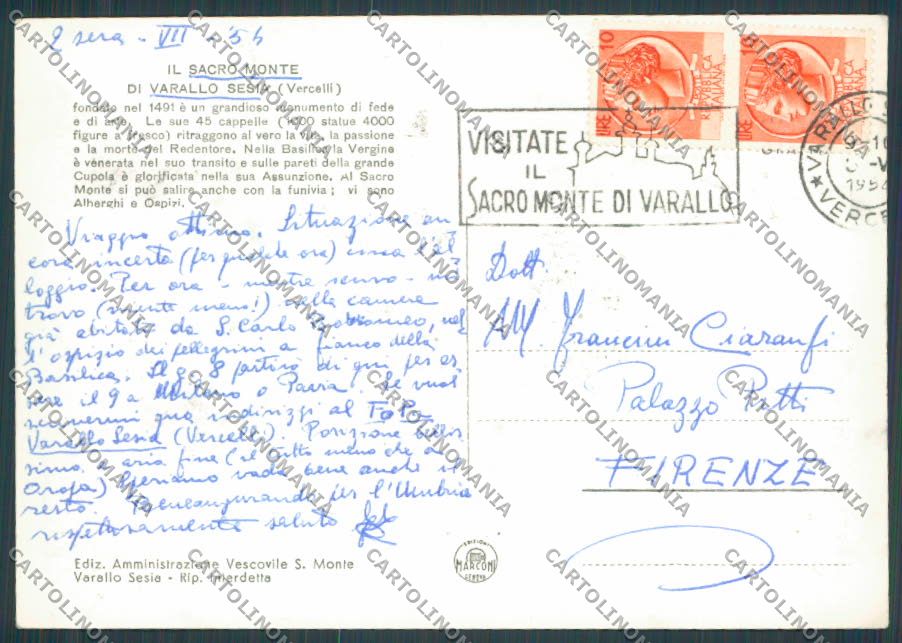 2 sera - VII - 54
IL SACRO MONTE
DI VARALLO SESIA (Vercelli)
fondato nel 1491 è un grandioso monumento di fede
e di arte. Le sue 45 cappelle (1000 statue 4000
figure a fresco) ritraggono al vero la vita, la passione
e la morte del Redentore. Nella Basilica la Vergine
è venerata nel suo transito e sulle pareti della grande
Cupola è glorificata nella sua Assunzione. Al Sacro
Monte si può salire anche con la funivia; vi sono
Alberghi e Ospizi.
Viaggio ottimo. Situazione an
cora incerta (per quanto ora) circa l'al
loggio. Per ora - mentre scrivo - mi
trovo (niente meno!) nella camera
già abitata da S. Carlo Borromeo, nel
l'ospizio dei pellegrini a fianco della
Basilica. Il g. 8 partirò di qui per es
sere il 9 a Milano o Pavia. Se vuol
scrivermi qua indirizzi al
Varallo Sesia (Vercelli). Posizione bellis
sima, aria fine (se tutto meno che ad
Oropa) Speriamo vada bene anche il
resto. per l'Umbria
rispettosamente saluto
Ediz. Amministrazione Vescovile S. Monte
Varallo Sesia - Rip. Interdetta
EDIZIONI
MARCONI
GENOVA
10
LIRE
REPUBBLICA
ITALIANA
10
LIRE
REPUBBLICA
ITALIANA
VISITATE
IL
SACRO MONTE DI VARALLO
VARALLO S
1954
VERCE
Dott.
All. Francini Ciaranfi
Palazzo Pitti
FIRENZE
CARTOLINOMANIA